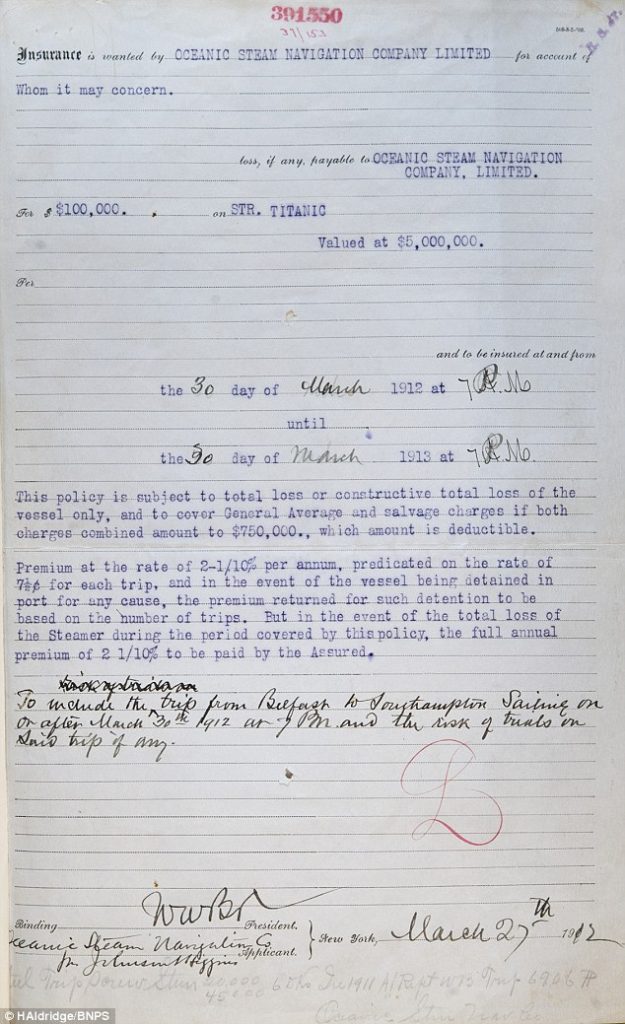 391550
37/152
Insurance is wanted by OCEANIC STEAM NAVIGATION COMPANY LIMITED for account of
Whom it may concern.
loss, if any, payable to OCEANIC STEAM NAVIGATION
COMPANY, LIMITED.
For $ $100,000. on STR. TITANIC
Valued at $5,000,000.
For
and to be insured at and from
the 30 day of March 1912 at 7 P.M
until
the 30 day of March 1913 at 7 P.M.
This policy is subject to total loss or constructive total loss of the
vessel only, and to cover General Average and salvage charges if both
charges combined amount to $750,000., which amount is deductible.
Premium at the rate of 2-1/10% per annum, predicated on the rate of
7½¢ for each trip, and in the event of the vessel being detained in
port for any cause, the premium returned for such detention to be
based on the number of trips. But in the event of the total loss of
the Steamer during the period covered by this policy, the full annual
premium of 2 1/10% to be paid by the Assured.
To include the trip from Belfast to Southampton Sailing on
or after March 30th 1912 at 7 PM and the risk of trials on
said trip if any.
Binding President.
Oceanic Steam Navigation Co Applicant.
pr Johnson & Higgins
New York, March 27th 1912
© HAldridge/BNPS